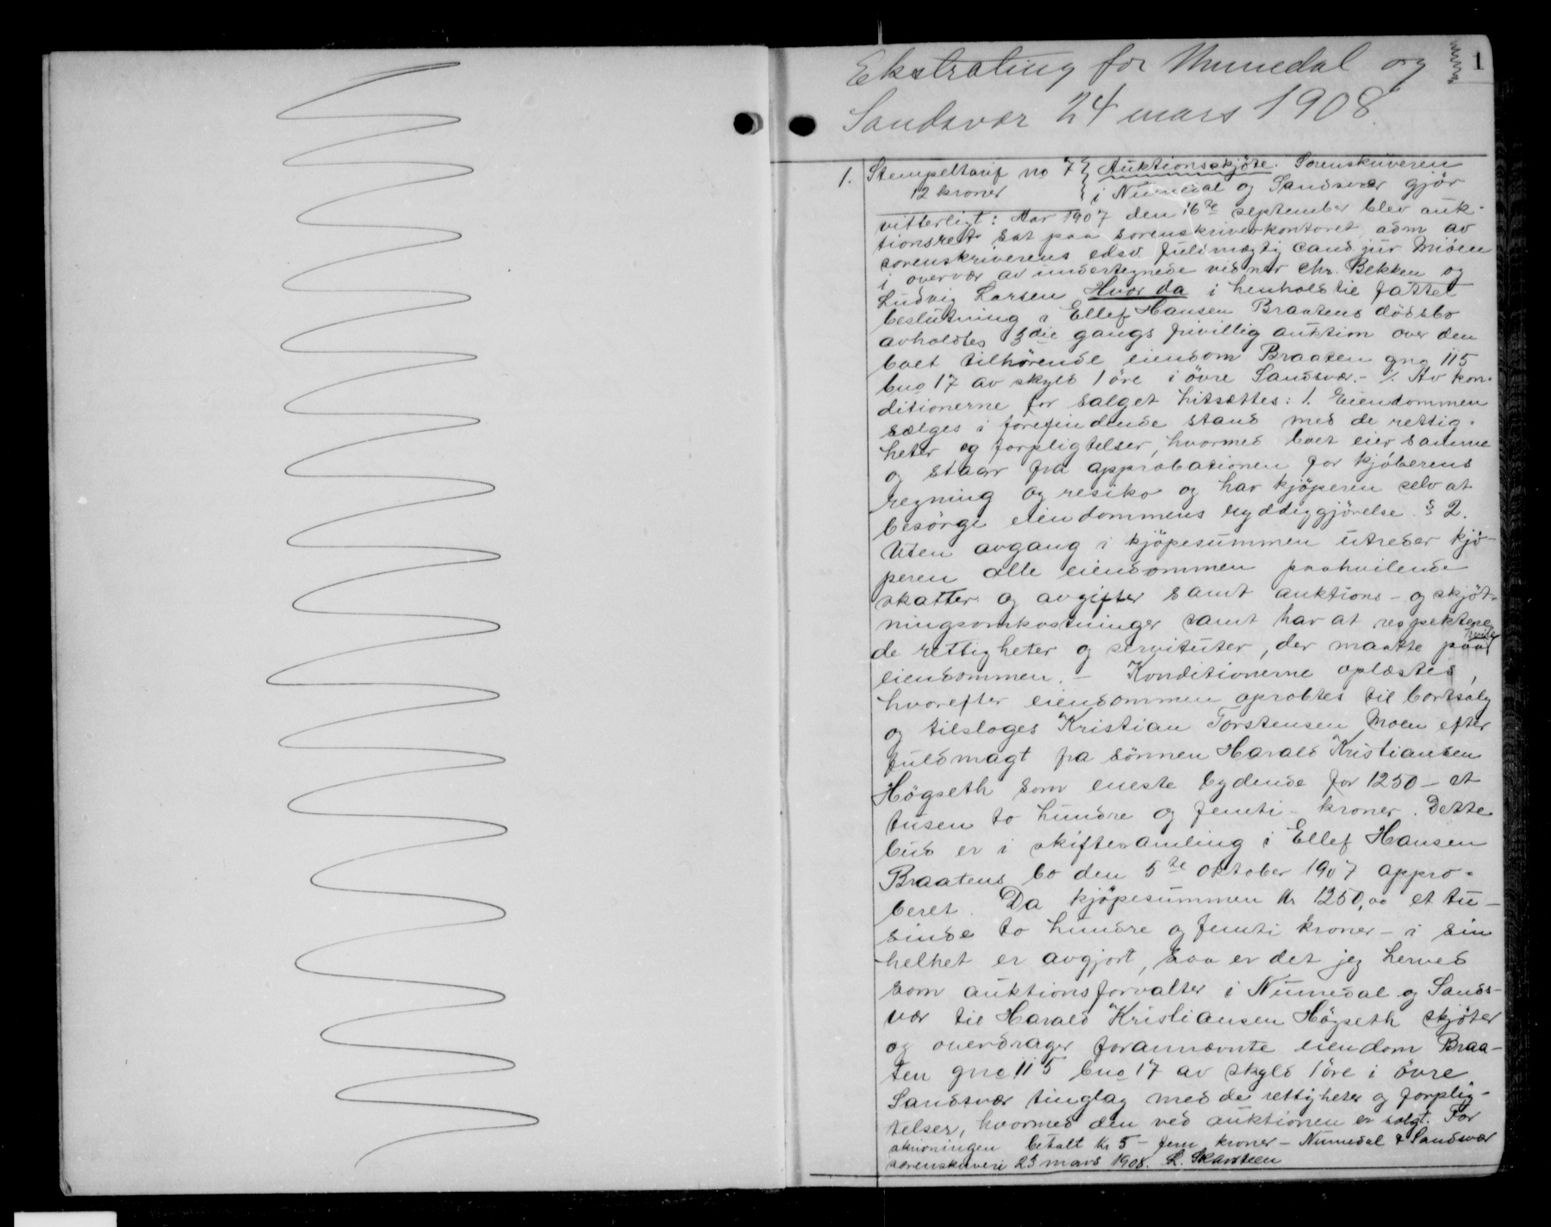 Ekstrating for Numedal og
Sandsvær 24 mars 1908.
1
1. Stempeltarif no 7 } Auktionsskjöte. Sorenskriveren
12 kroner } i Numedal og Sandsvær gjör
vitterligt: Aar 1907 den 16de september blev auk-
tionsret sat paa sorenskriverkontoret adm av
sorenskriverens edsv fuldmægtig cand jur Möien
i overvær av undertegnede vidner Chr. Bekken og
Ludvig Larsen Hvor da i henhold til fattet
beslutning i Ellef Hansen Braatens dödsbo
avholdtes 3die gangs frivillig auktion over den
boet tilhörende eiendom Braaten gno 115
bno 17 av skyld 1 öre i övre Sandsvær. - /. Av kon-
ditionerne for salget hitsættes: 1. Eiendommen
sælges i forefindende stand med de rettig-
heter og forpligtelser, hvormed boet eier samme
og staar fra approbationen for kjöberens
regning og resiko og har kjöperen selv at
besörge eiendommens ryddiggjörelse. § 2.
Uten avgang i kjöpesummen utreder kjö-
peren alle eiendommen paahvilende
skatter og avgifter samt auktions- og skjöt-
ningsomkostninger samt har at respektere
de rettigheter og servituter, der maatte paahvile
eiendommen. - Konditionerne oplæstes,
hvorefter eiendommen oprobtes til bortsalg
og tilsloges Kristian Torstensen Moen efter
fuldmagt fra sönnen Harald Kristiansen
Högseth som eneste bydende for 1250 - et
tusen to hundre og femti - kroner. Dette
bud er i skiftesamling i Ellef Hansen
Braatens bo den 5te oktober 1907 appro-
beret. Da kjöpesummen Kr 1250,00 et tu-
sinde to hundre og femti kroner - i sin
helhet er avgjort, saa er det jeg herved
som auktionsforvalter i Numedal og Sands-
vær til Harald Kristiansen Högseth skjöter
og overdrager forannævnte eiendom Braa-
ten gno 115 bno 17 av skyld 1 öre i övre
Sandsvær tinglag med de rettigheter og forplig-
telser, hvormed den ved auktionen er solgt. For
skrivningen betalt Kr 5 - fem kroner - Numedal & Sandsvær
sorenskriveri 23 mars 1908. L. Skarsteen